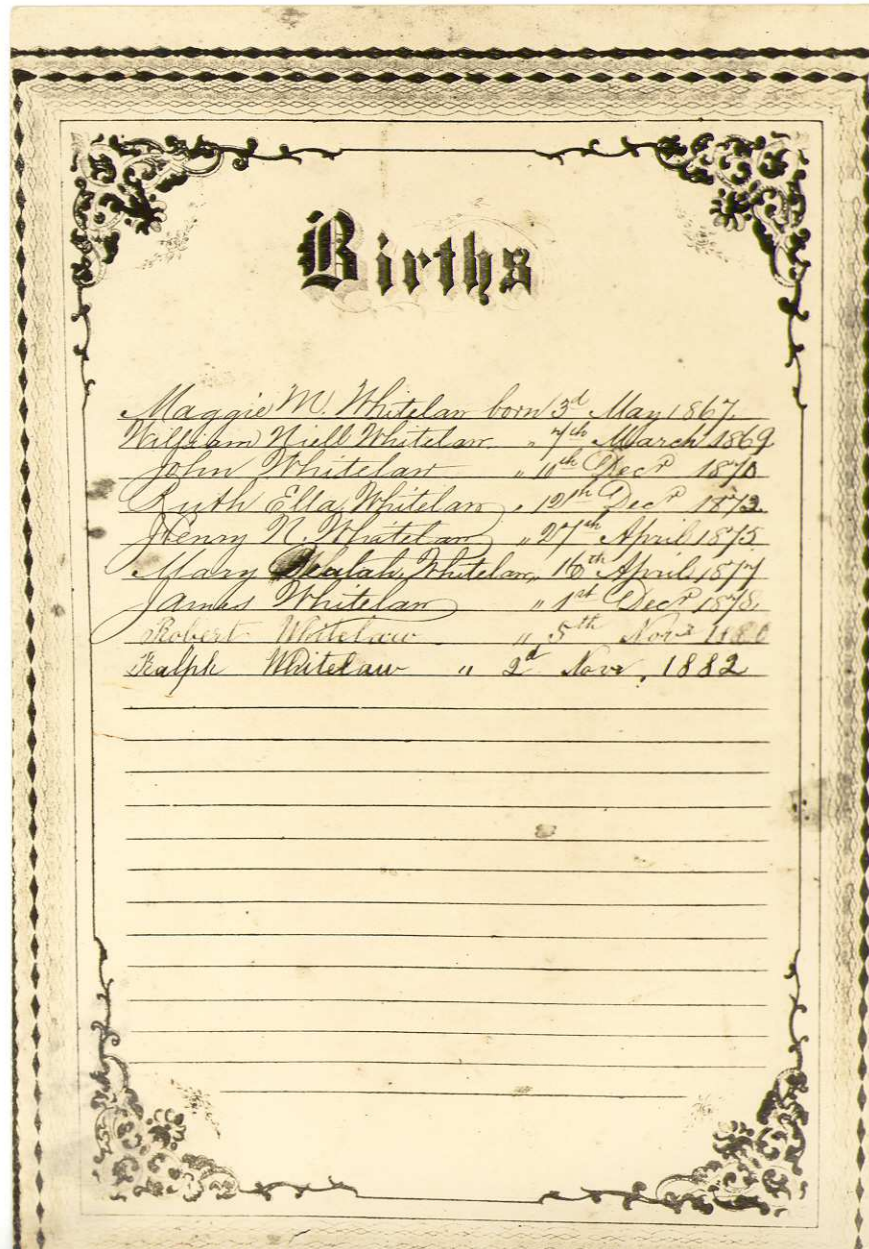 Births
Maggie M. Whitelaw born 3d May 1867.
William Niell Whitelaw " 7th March 1869
John Whitelaw " 11th Decr 1870
Ruth Ella Whitelaw " 12th Decr 1872.
Henry N. Whitelaw " 27th April 1875
Mary Whitelaw " 16th April 1877
James Whitelaw " 1st Decr 1878.
Robert Whitelaw " 5th Novr 1880
Ralph Whitelaw " 2d Novr, 1882